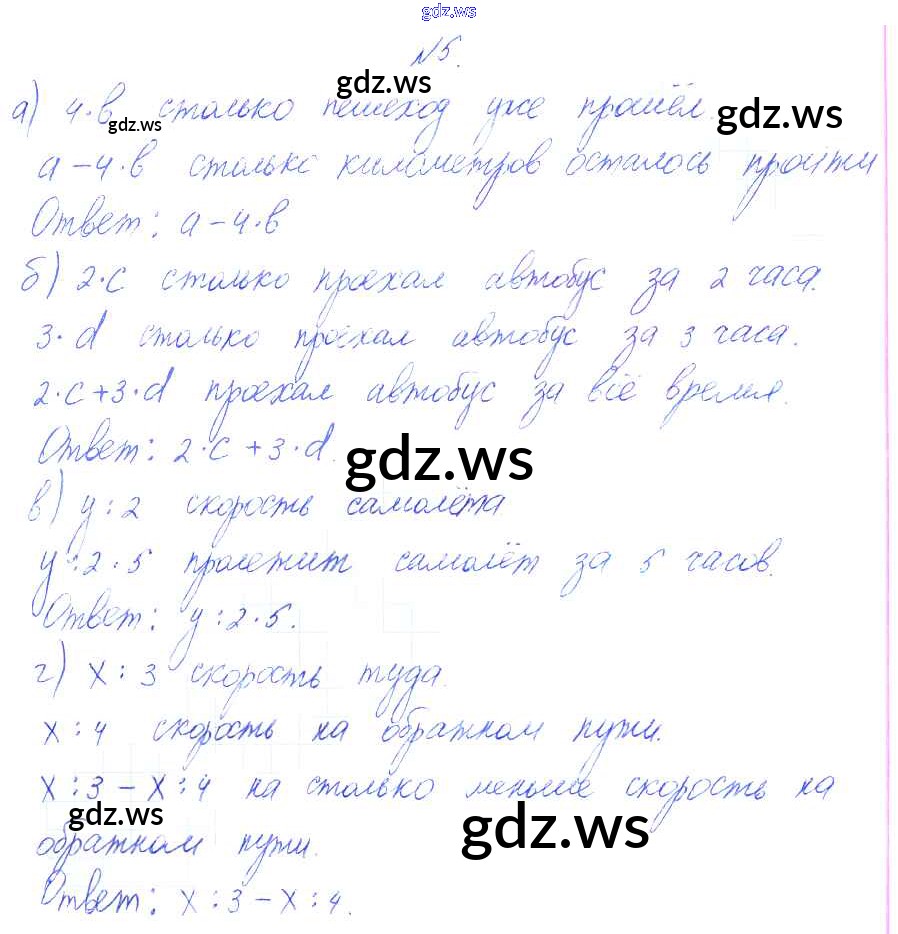 gdz.ws
№5.
gdz.ws
а) 4·в столько пешеход уже прошёл.
gdz.ws
gdz.ws
а-4·в столько километров осталось пройти
Ответ: а-4·в
б) 2·с столько проехал автобус за 2 часа.
3·d столько проехал автобус за 3 часа.
2·с+3·d проехал автобус за всё время.
Ответ: 2·с+3·d.
gdz.ws
в) у:2 скорость самолёта
у:2·5 пролетит самолёт за 5 часов.
Ответ: у:2·5.
г) х:3 скорость туда.
х:4 скорость на обратном пути.
х:3-х:4 на столько меньше скорость на
gdz.ws
gdz.ws
обратном пути.
Ответ: х:3-х:4.